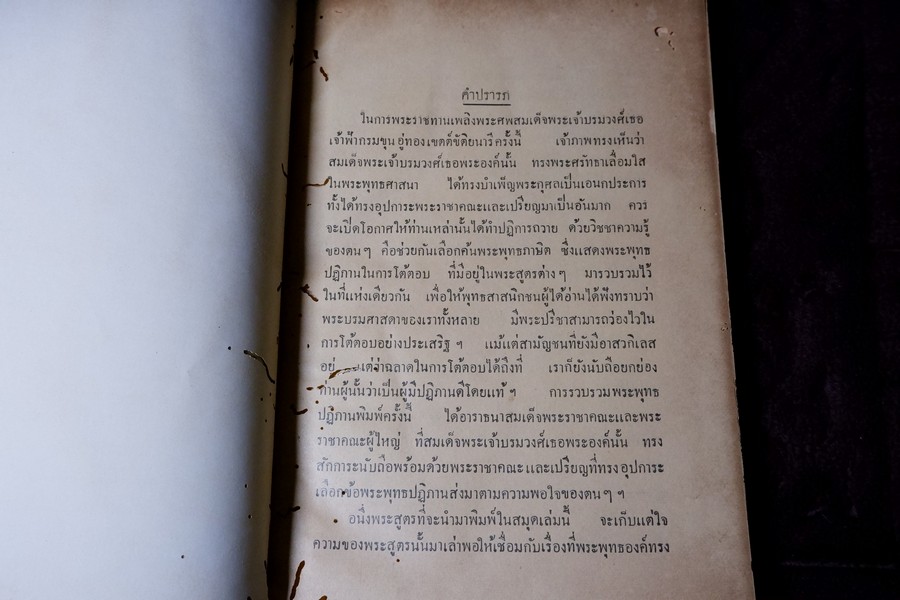 คำปรารภ
ในการพระราชทานเพลิงพระศพสมเด็จพระเจ้าบรมวงศ์เธอ
เจ้าฟ้ากรมขุนอู่ทองเขตต์ขัติยนารีครั้งนี้ เจ้าภาพทรงเห็นว่า
สมเด็จพระเจ้าบรมวงศ์เธอพระองค์นั้น ทรงพระศรัทธาเลื่อมใส
ในพระพุทธศาสนา ได้ทรงบำเพ็ญพระกุศลเป็นเอนกประการ
ทั้งได้ทรงอุปการะพระราชาคณะและเปรียญมาเป็นอันมาก ควร
จะเปิดโอกาสให้ท่านเหล่านั้นได้ทำปฏิการถวาย ด้วยวิชชาความรู้
ของตน ๆ คือช่วยกันเลือกค้นพระพุทธภาษิต ซึ่งแสดงพระพุทธ
ปฏิภานในการโต้ตอบ ที่มีอยู่ในพระสูตรต่าง ๆ มารวบรวมไว้
ในที่แห่งเดียวกัน เพื่อให้พุทธสาสนิกชนผู้ได้อ่านได้ฟังทราบว่า
พระบรมศาสดาของเราทั้งหลาย มีพระปรีชาสามารถว่องไวใน
การโต้ตอบอย่างประเสริฐ ฯ แม้แต่สามัญชนที่ยังมีอาสวกิเลส
อยู่ แต่ว่าฉลาดในการโต้ตอบได้ถึงที่ เราก็ยังนับถือยกย่อง
ท่านผู้นั้นว่าเป็นผู้มีปฏิภานดีโดยแท้ ฯ การรวบรวมพระพุทธ
ปฏิภานพิมพ์ครั้งนี้ ได้อาราธนาสมเด็จพระราชาคณะและพระ
ราชาคณะผู้ใหญ่ ที่สมเด็จพระเจ้าบรมวงศ์เธอพระองค์นั้น ทรง
สักการะนับถือพร้อมด้วยพระราชาคณะ และเปรียญที่ทรงอุปการะ
เลือกข้อพระพุทธปฏิภานส่งมาตามความพอใจของตน ๆ ฯ
อนึ่งพระสูตรที่จะนำมาพิมพ์ในสมุดเล่มนี้ จะเก็บแต่ใจ
ความของพระสูตรนั้นมาเล่าพอให้เชื่อมกับเรื่องที่พระพุทธองค์ทรง